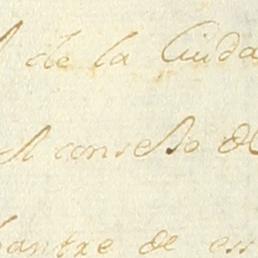 de la Ciuda
el consello de
hantre de es